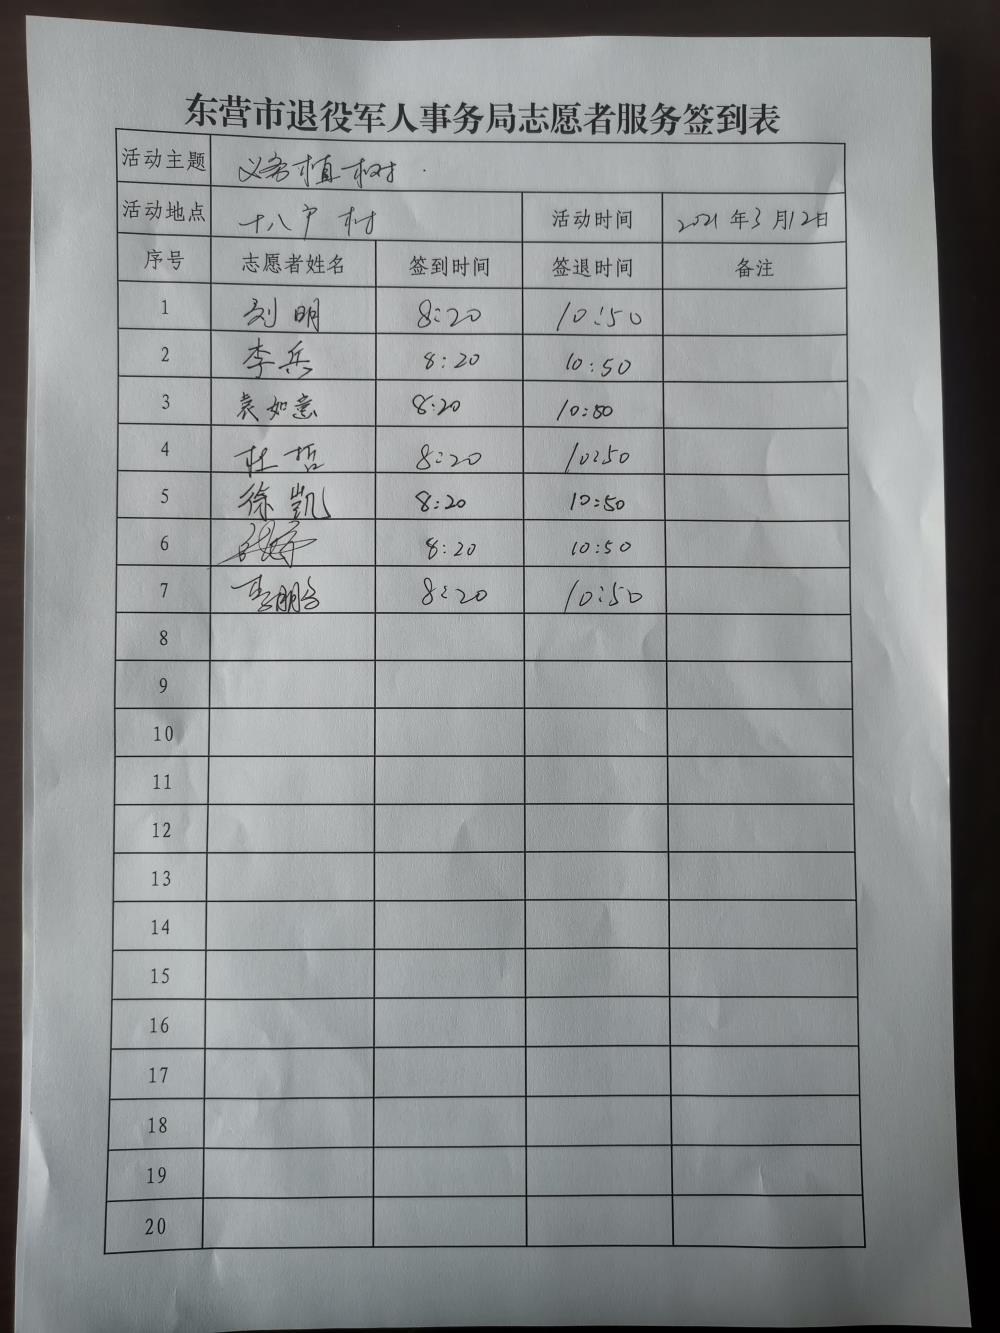 东营市退役军人事务局志愿者服务签到表
活动主题 义务植树
活动地点 十八户村 活动时间 2021年3月12日
序号 志愿者姓名 签到时间 签退时间 备注
1 刘明 8:20 10:50
2 李兵 8:20 10:50
3 袁如意 8:20 10:50
4 杜哲 8:20 10:50
5 徐凯 8:20 10:50
6 8:20 10:50
7 8:20 10:50
8
9
10
11
12
13
14
15
16
17
18
19
20